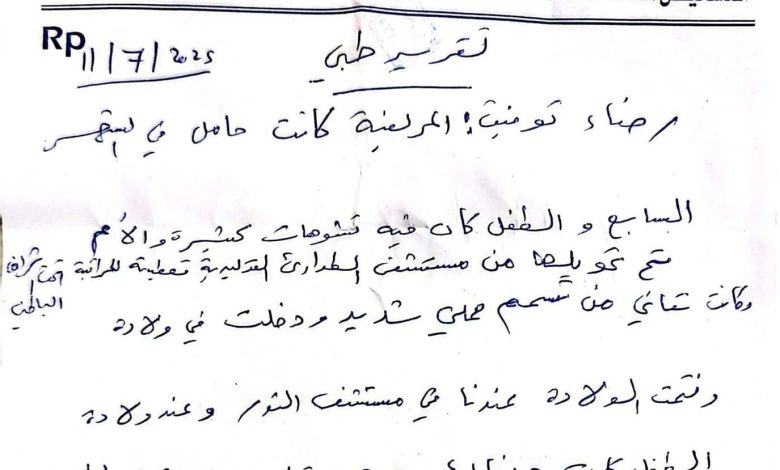 Rp
11/7/2025
تقرير طبي
رضاء توفيق: المريضة كانت حامل في الشهر
السابع و الطفل كان فيه تشوهات كثيرة والأم
تم تحويلها من مستشفى الطوارئ التوليدية للمراقبة
الباطني
وكانت تعاني من تسمم حملي شديد ودخلت في ولادة
وتمت الولادة عندنا في مستشفى النور وعند ولادة
الطفل كانت